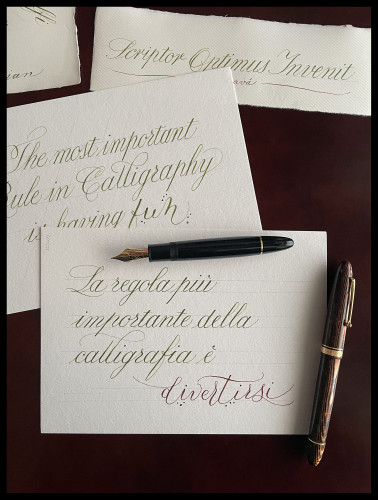 Scriptor Optimus Invenit
The most important
Rule in Calligraphy
is having fun
La regola più
importante della
calligrafia è
divertirsi